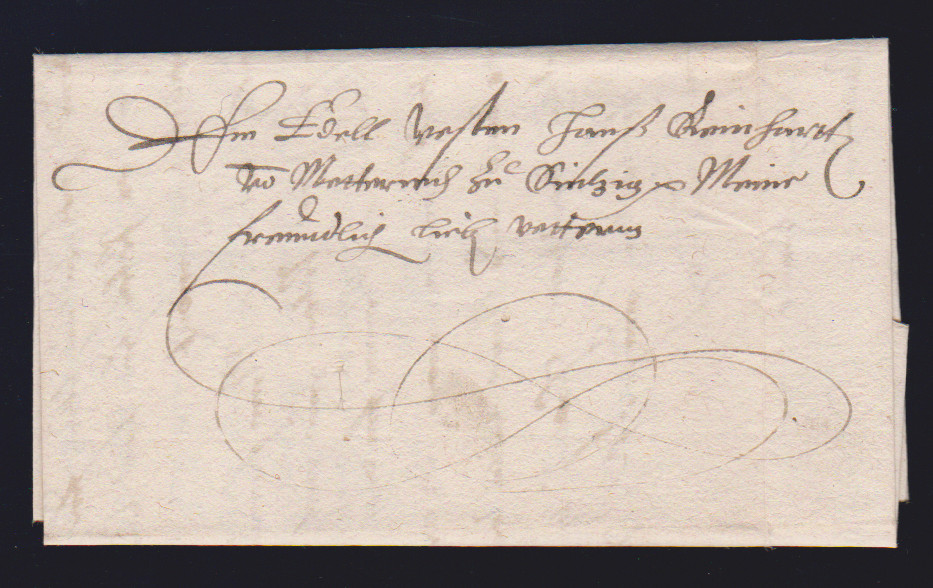 Dem Edell Vesten Hanß Reinhartt
vo Metternich zu Sintzig Meine
freundtlich lieb vettern